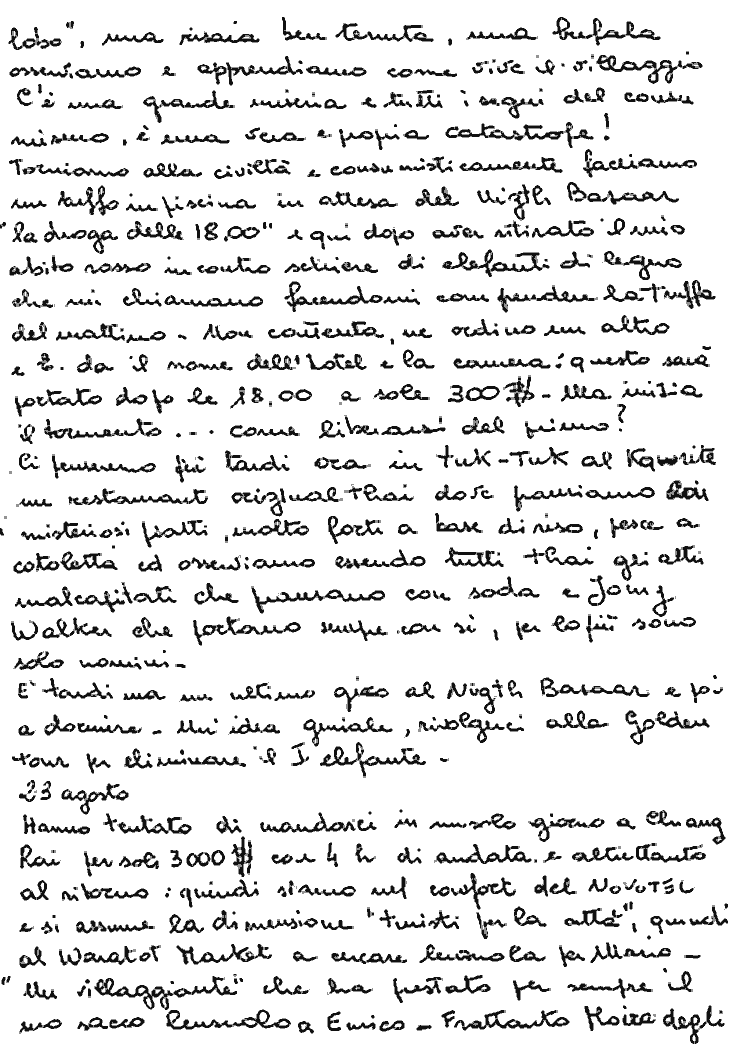 lobo", una risaia ben tenuta, una bufala
osserviamo e apprendiamo come vive il villaggio
C'è una grande miseria e tutti i segni del consu
mismo, è una vera e propria catastrofe!
Torniamo alla civiltà e consumisticamente facciamo
un tuffo in piscina in attesa del Nigth Basaar
"la droga delle 18.00" e qui dopo aver ritirato il mio
abito rosso incontro schiere di elefanti di legno
che mi chiamano facendomi comprendere la truffa
del mattino - Non contenta, ne ordino un altro
e E. da il nome dell'hotel e la camera: questo sarà
portato dopo le 18.00 a sole 300 $ - Ma inizia
il tormento ... come liberarsi del primo?
Ci penseremo più tardi ora in Tuk-Tuk al
un restaurant original thai dove pranziamo con
misteriosi piatti, molto forti a base di riso, pesce a
cotoletta ed osserviamo essendo tutti thai gli altri
malcapitati che pransano con soda e Jonny
Walker che portano sempre con sé, per lo più sono
solo uomini -
E' tardi ma un ultimo giro al Nigth Basaar e poi
a dormire - Un'idea geniale, rivolgerci alla Golden
tour per eliminare il I elefante -
23 agosto
Hanno tentato di mandarci in un solo giorno a Chiang
Rai per soli 3000 $ con 4 h di andata e altrettanto
al ritorno: quindi siamo nel confort del NOVOTEL
e si assume la dimensione "turisti per la città", quindi
al Waratot Market a cercare lensuola per Mario -
"Un villaggiante" che ha prestato per sempre il
suo sacco lensuolo a Enrico - Frattanto Moira degli